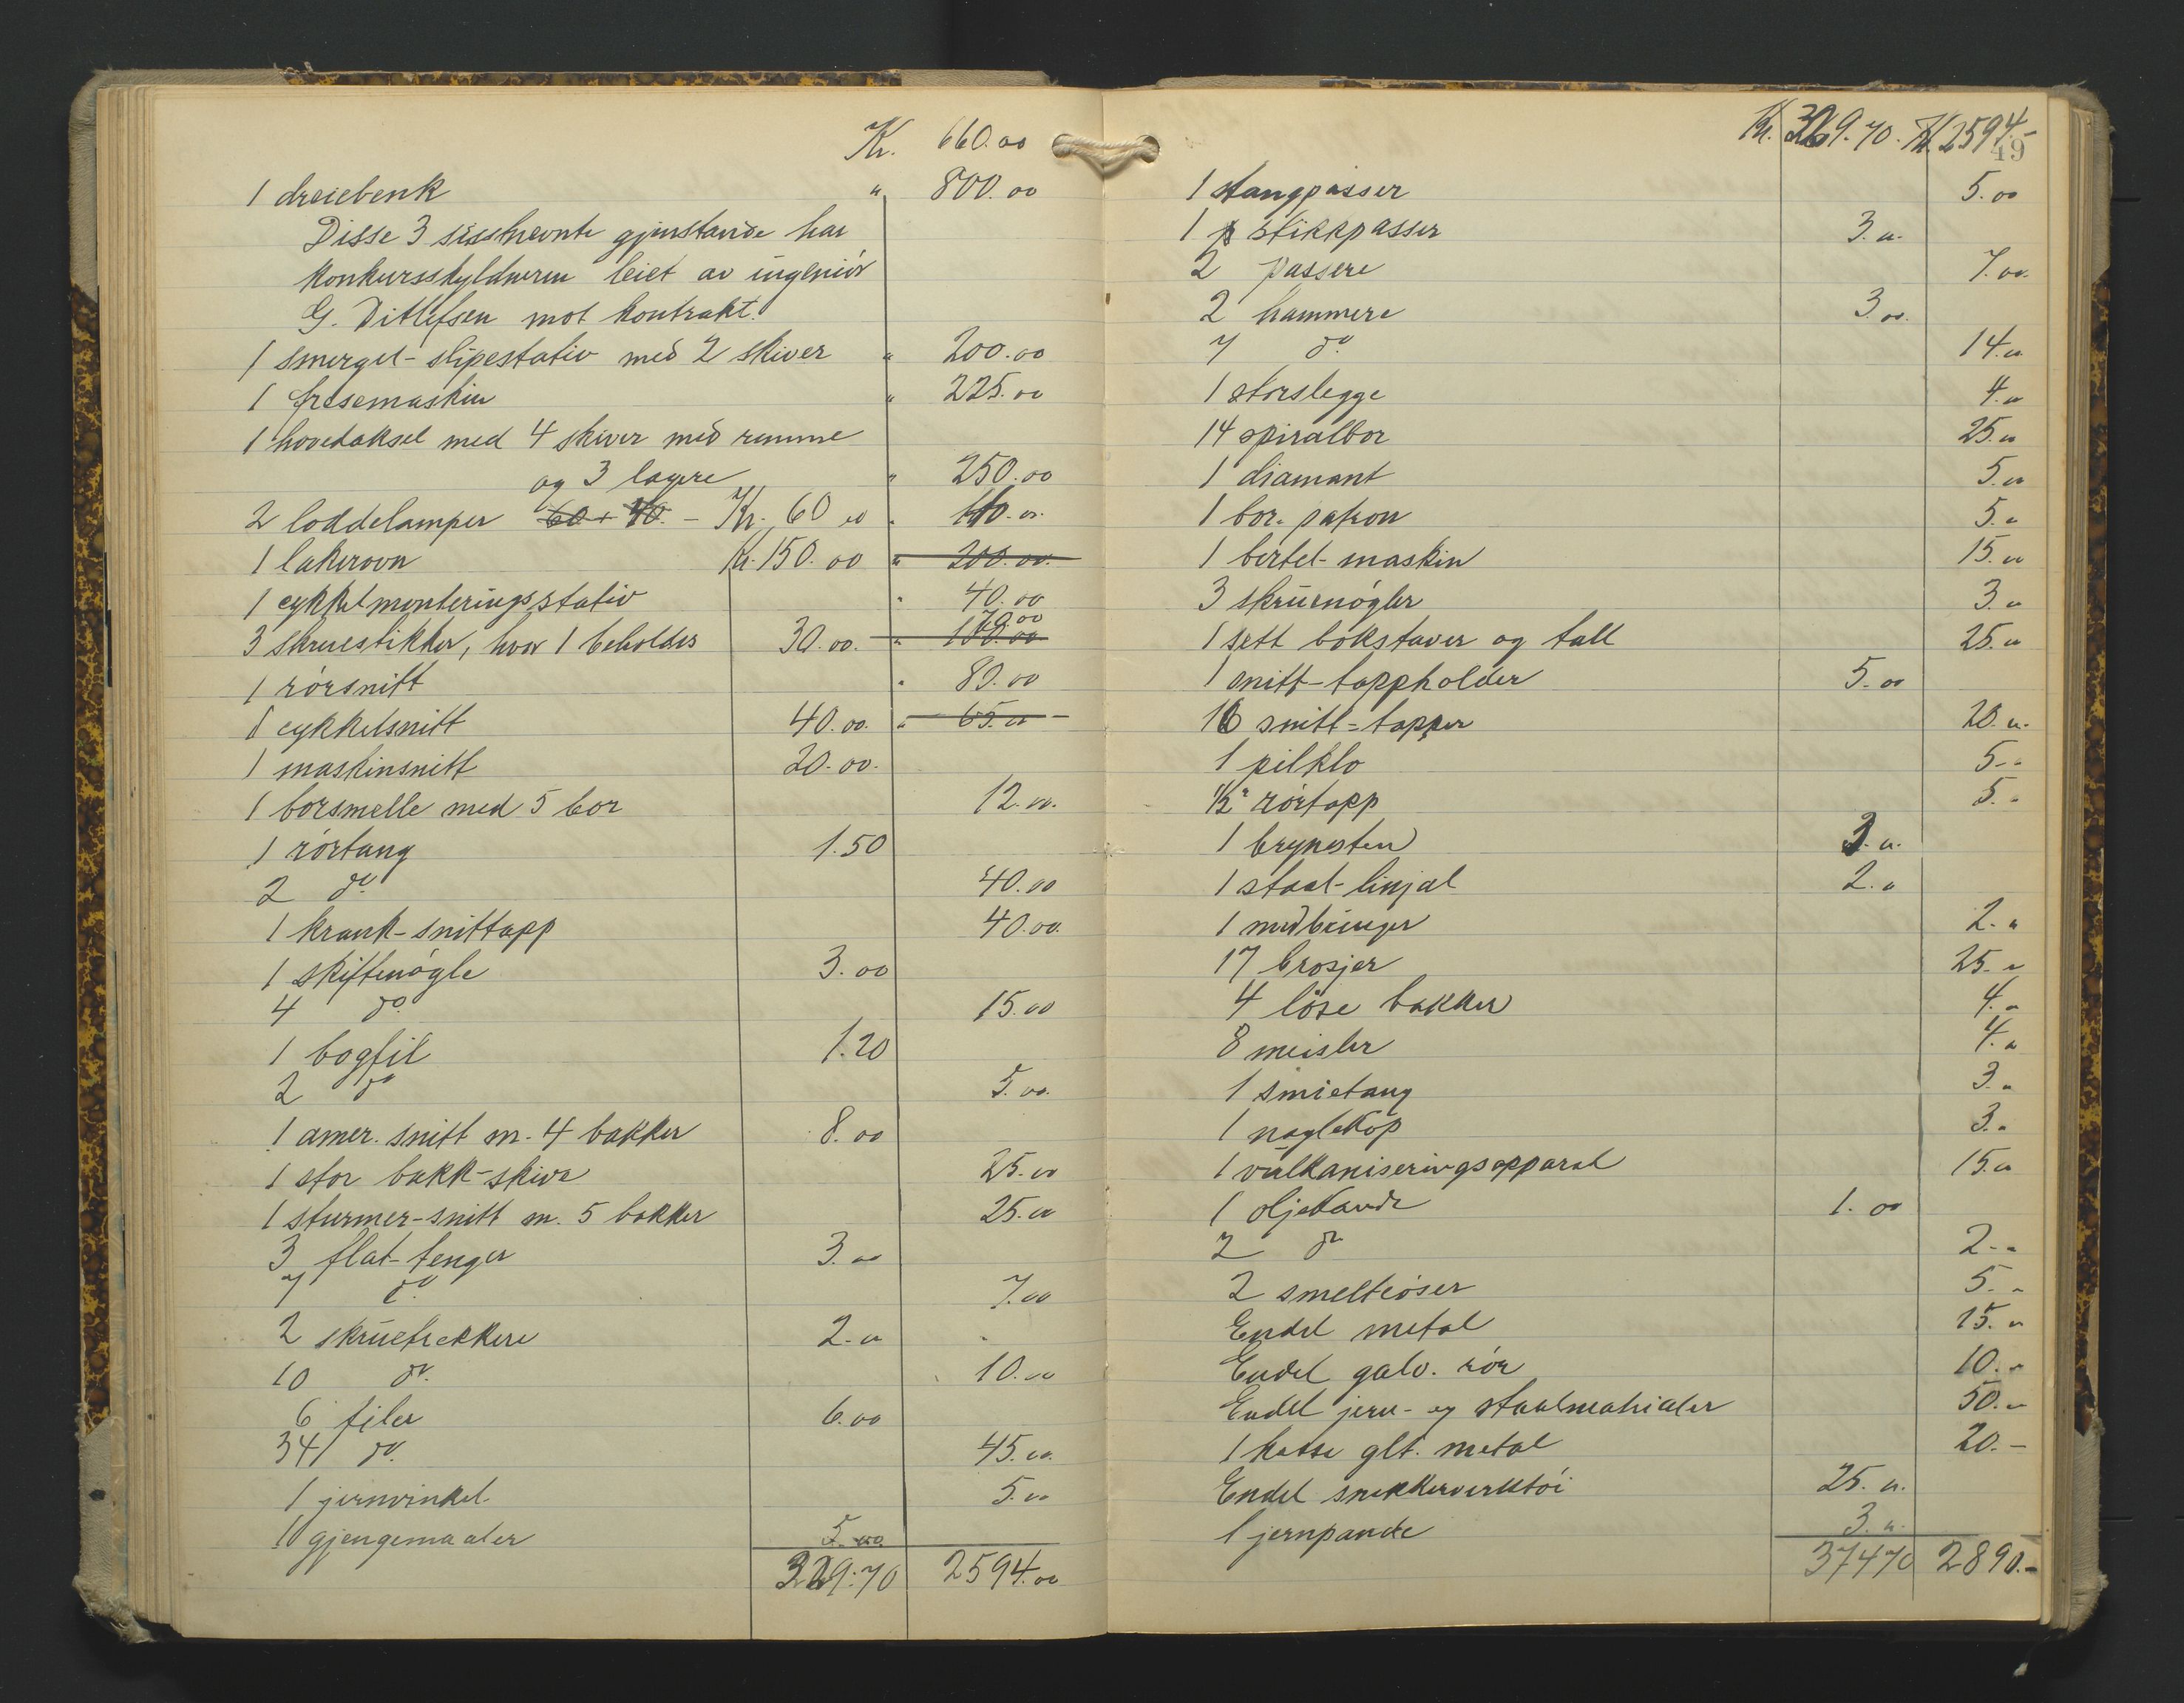 Kr. 660.00
1 dreiebenk " 800.00
Disse 3 sisstnevnte gjenstande har
konkursskyldneren leiet av ingeniör
G. Ditlefsen mot kontrakt.
1 smergel-slipestativ med 2 skiver " 200.00
1 fresemaskin " 225.00
1 hovedaksel med 4 skiver med remme
og 3 lagere " 250.00
2 loddelamper 60 + 40. - Kr. 60 00 " 40.00
1 lakerovn Kr. 150.00 " 200.00.
1 cykkelmonteringsstativ " 40.00
70.00
3 skruestikker, hvor 1 beholdes 30.00. " 100.00
1 rörsnitt " 80.00
1 cykkelsnitt 40.00. " 65.00
1 maskinsnitt 20.00.
1 borsmelle med 5 bor 12.00.
1 rörtang 1.50
2 do. 40.00
1 krank-snittapp 40.00.
1 skiftenögle 3.00
4 do. 15.00
1 bogfil 1.20
2 do 5.00.
1 amer. snitt m. 4 bakker 8.00
1 stor bakk-skive 25.00
1 sturmer-snitt m. 5 bakker 25.00
3 flat-tenger 3.00
7 do. 7.00
2 skruetrekkere 2.00
10 do. 10.00
6 filer 6.00
34 do. 45.00.
1 jernvinkel 5.00
10 gjengemaaler 5.00
329.70 2594.00
Kr. 329.70. Kr. 2594.-
49
1 stangpasser 5.00
1 stikkpasser 3.00.
2 passere 7.00.
2 hammere 3.00.
7 do. 14.00
1 storslegge 4.00
14 spiralbor 25.00
1 diamant 5.00
1 bor-patron 5.00
1 bertel-maskin 15.00
3 skruenögler 3.00
1 sett bokstaver og tall 25.00
1 snitt-tappholder 5.00
16 snitt-tapper 20.00.
1 pilklo 5.-
1/2" rörtapp 5.-
1 brynesten 3.00.
1 staal-linjal 2.00
1 medbringer 2.00
17 brosjer 25.00
4 löse bakker 4.00
8 meisler 4.00
1 smietang 3.00
1 naglekop 3.00
1 vulkaniseringsapparat 15.00
1 oljekande 1.00
2 do 2.-
2 smelteöser 5.-
Endel metal 15.00
Endel galv. rör 10.00
Endel jern- og staalmatrialer 50.00
1 kasse glt. metal 20.-
Endel snekkerverktöi 25.00.
1 jernpande 3.00.
374 70 2890.-